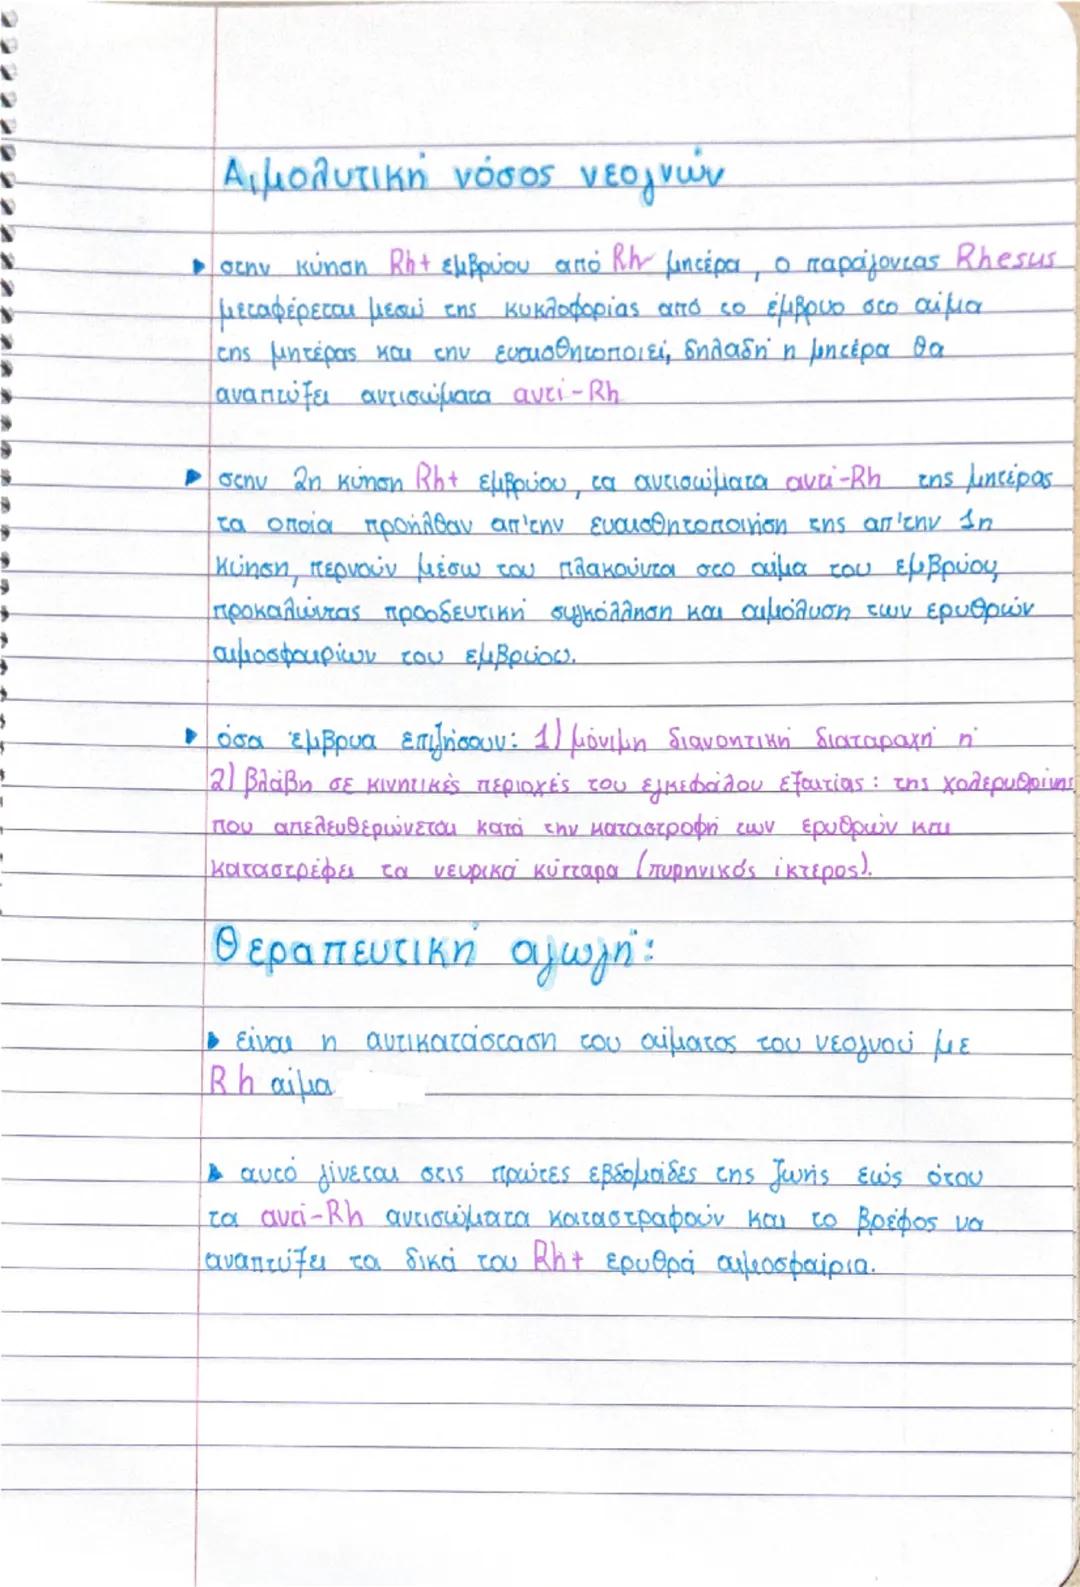 Αιμολυτική νόσος νεογνών
▶ στην κύηση Rh+ εμβρύου από Rh- μητέρα, ο παράγοντας Rhesus
μεταφέρεται μέσω της κυκλοφορίας από το έμβρυο στο αίμα
της μητέρας και την ευαισθητοποιεί, δηλαδή η μητέρα θα
αναπτύξει αντισώματα αντί-Rh
▶ στην 2η κύηση Rh+ εμβρύου, τα αντισώματα αντί-Rh της μητέρας
τα οποία προήλθαν απ'την ευαισθητοποίηση της απ'την 1η
κύηση, περνούν μέσω του πλακούντα στο αίμα του εμβρύου,
προκαλώντας προοδευτική συγκόλληση και αιμόλυση των ερυθρών
αιμοσφαιρίων του εμβρύου.
▶ όσα έμβρυα επιζήσουν: 1) μόνιμη διανοητική διαταραχή ή
2) βλάβη σε κινητικές περιοχές του εγκεφάλου εξαιτίας: της χολερυθρίνης
που απελευθερώνεται κατά την καταστροφή των ερυθρών και
καταστρέφει τα νευρικά κύτταρα (πυρηνικός ίκτερος).
Θεραπευτική αγωγή:
▶ είναι η αντικατάσταση του αίματος του νεογνού με
Rh αίμα
▶ αυτό γίνεται στις πρώτες εβδομάδες της ζωής εώς ότου
τα αντί-Rh αντισώματα καταστραφούν και το βρέφος να
αναπτύξει τα δικά του Rh+ ερυθρά αιμοσφαίρια.